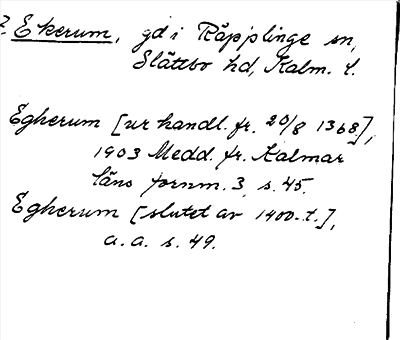 ? Ekerum, gd i Räpplinge sn,
Slättbo hd, Kalm. l.
Egherum [ur handl. fr. 20/8 1368],
1903 Medd. fr. Kalmar
läns fornm. 3, s. 45.
Egherum [slutet av 1400-t.],
a. a. s. 49.